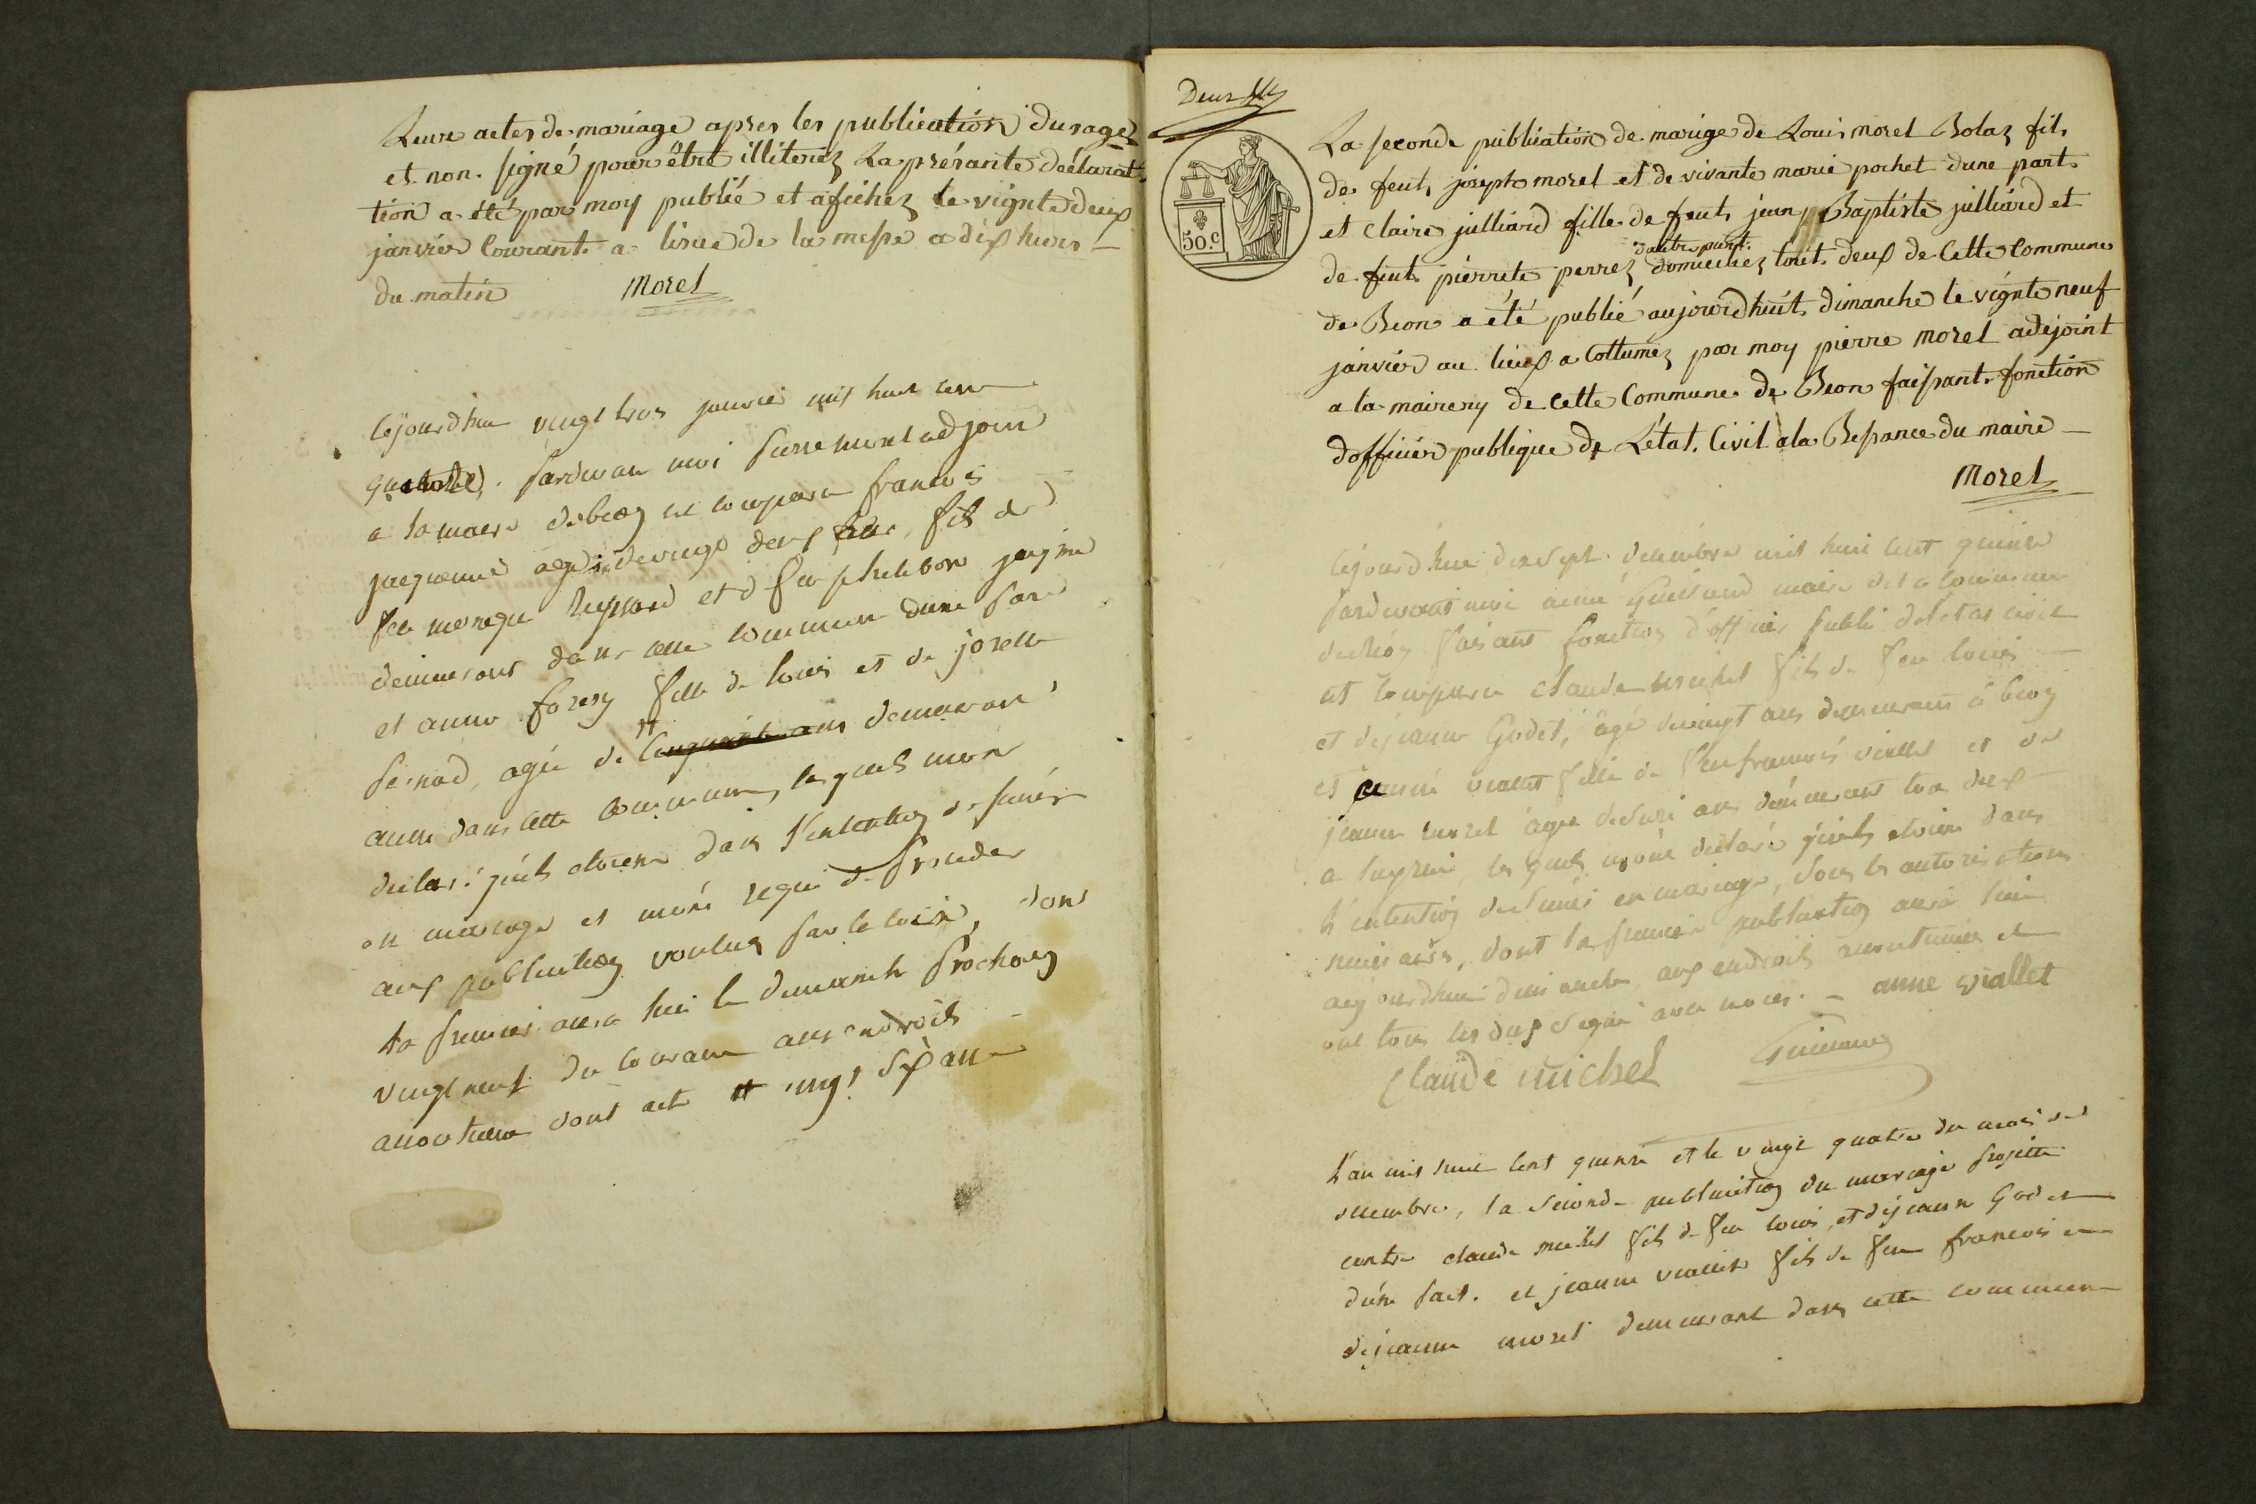 Leure actes de mariage apres les publication dusagez
et non signé pour être illiteriez La présante déclarat
tion a été par moy publié et afichez le vignte deux
janvier Courant a lisue de la messe a dix heurs
du matin Morel
Cejourdhui vingt trois janvier mil huit cent
quatorze, Pardevan moi Pierre morel adjoin
a la maire de beon est comparu francois
jacquemie agé de vingt deux ans, fils de
feu et de feu philibon
demeurant dans cette commune dune Par
et anne forery fille de louis et de
agée de demeuran
aussi dans cette commune, les quels mon
declaré quils etoiens dans l'intention de s'unir
en mariage et mont requi de Proceder
aux publication voulues par la loix, dont
la premier aura lieu le dimanche Prochain
vingt neuf du courant aux endroits
accoutume dont acte # vingt six ans
Deux
50.c
La seconde publication de marige de Louis morel Bolaz fils
de feut joseph morel et de vivante marie pochet dune part
et Claire julliard fille de feut jean Baptiste julliard et
d'autre part.
de feut pierrete perrez domiciliez tout deux de Cette Commune
de Beon a été publié aujourdhuit dimanche le vignte neuf
janvier au lieux a Cottumez par moy pierre morel adejoint
a la mairery de cette Commune de Beon faissant fonction
dofficier publique de Létat Civil a la Bessance du maire
Morel
Cejourdhui dixsept decembre mil huit cent quinze
Pardevant moi aimé Guillaud maire de la commune
de béon faisant fonction d'officier Public de letat civil
est comparu claude michel fils de feu louis
et de jeanne Godet, âgé de vingt ans demeurant à béon
et jeanne viallet fille de feu francois viallet et de
jeanne morel âgée de seize ans demeurant tous deux
a les quels mont déclaré quils etoient dans
L'intention de s'unir en mariage, sous les autorisations
necessaire, dont la premier publication aura lieu
aujourdhui dimanche aux endroits accoutumés et
ont tous les deux signé avec nous. anne viallet
Claude michel Guillaud
L'an mil huit cent quinze et le vingt quatre du mois de
decembre, la seconde publication du mariage projetté
entre claude michel fils de feu louis, et de jeanne Godet
d'une part. et jeanne viallet fils de feu francois et
de jeanne morel demeurant dans cette commune